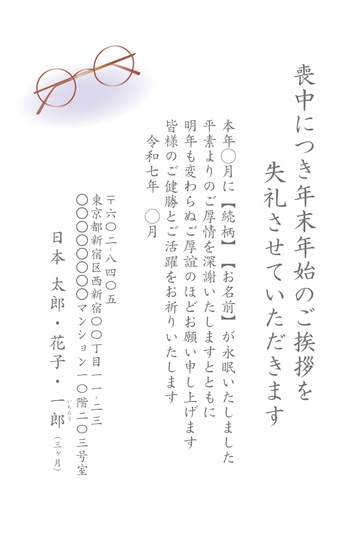 喪中につき年末年始のご挨拶を
失礼させていただきます
本年〇月に【続柄】【お名前】が永眠いたしました
平素よりのご厚情を深謝いたしますとともに
明年も変わらぬご厚誼のほどお願い申し上げます
皆様のご健勝とご活躍をお祈りいたします
令和七年 〇月
〒六〇二-八四〇五
東京都新宿区西新宿〇〇丁目一一-二三
〇〇〇〇〇〇〇マンション一〇階二〇三号室
日本 太郎・花子・一郎(三ヶ月)
いちろう